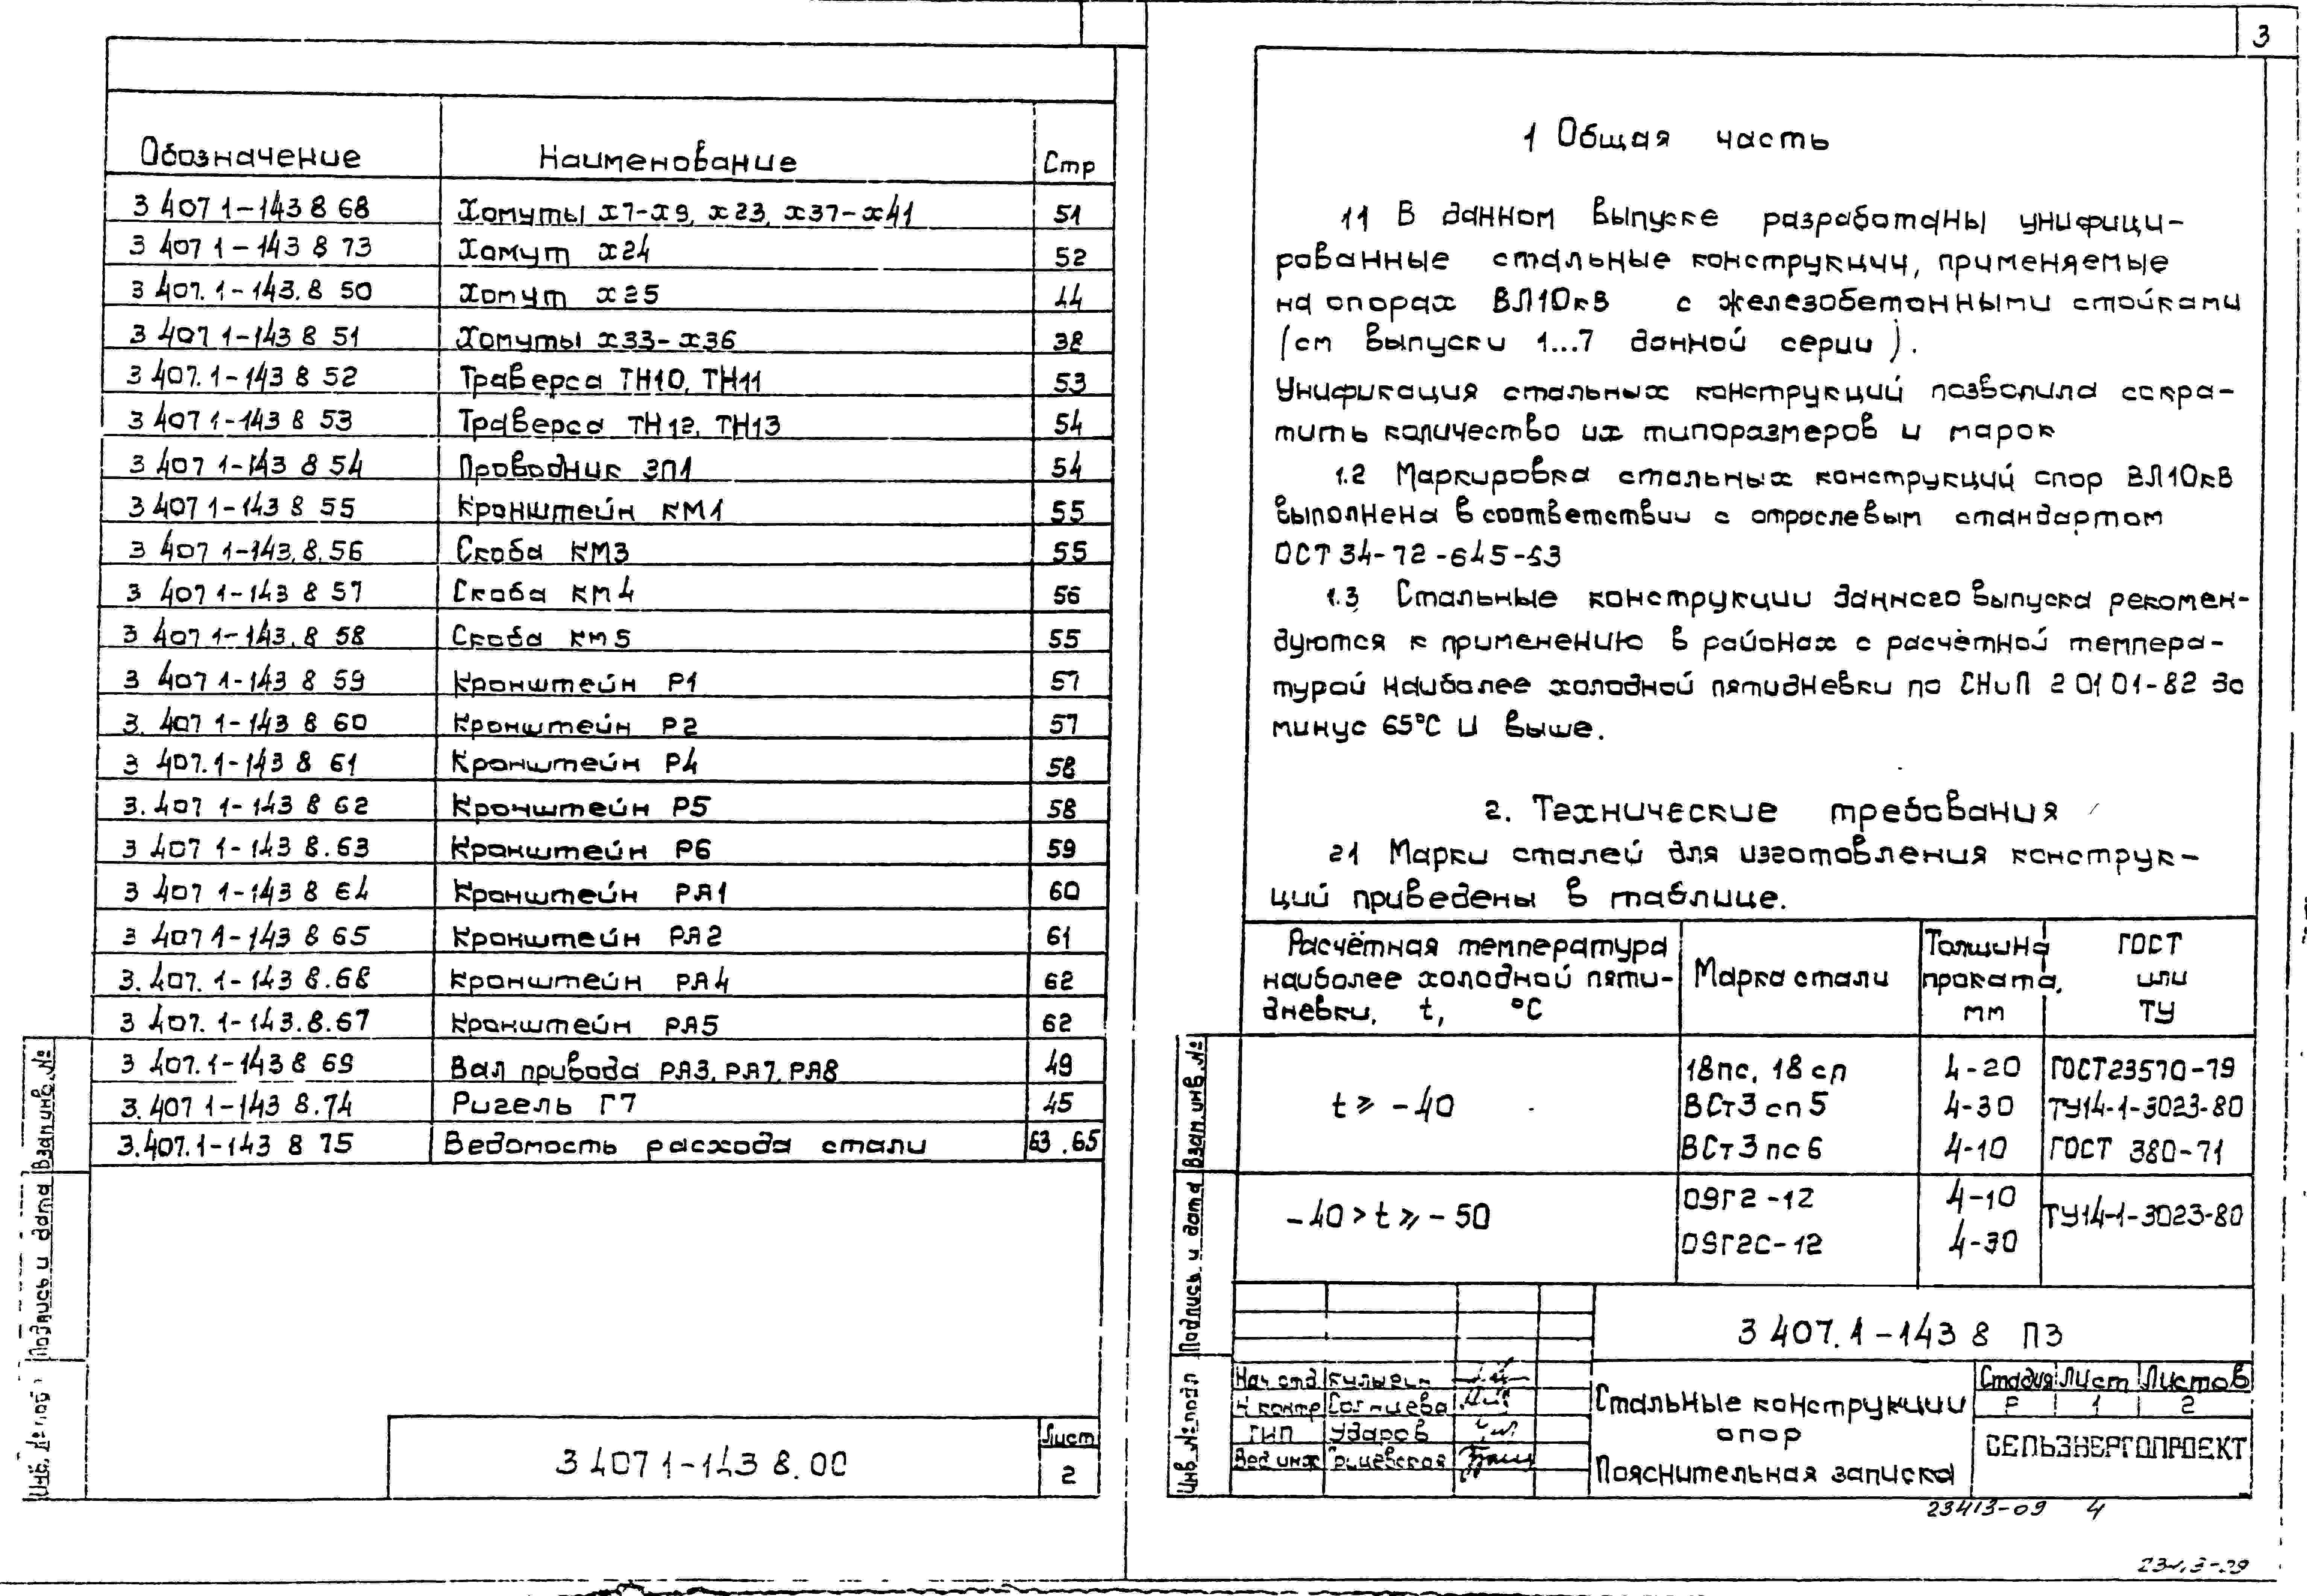 Обозначение Наименование Стр
3 407 1-143 8 68 Хомуты х7-х9, х23, х37-х41 51
3 407 1-143 8 73 Хомут х24 52
3 407.1-143.8 50 Хомут х25 44
3 407 1-143 8 51 Хомуты х33-х36 38
3 407.1-143 8 52 Траверса ТН10, ТН11 53
3 407 1-143 8 53 Траверса ТН12, ТН13 54
3 407 1-143 8 54 Проводник ЗП1 54
3 407 1-143 8 55 Кронштейн КМ1 55
3 407 1-143.8.56 Скоба КМ3 55
3 407 1-143 8 57 Скоба КМ4 56
3 407 1-143.8 58 Скоба КМ5 55
3 407 1-143 8 59 Кронштейн Р1 57
3. 407 1-143 8 60 Кронштейн Р2 57
3 407.1-143 8 61 Кронштейн Р4 58
3. 407 1-143 8 62 Кронштейн Р5 58
3 407 1-143 8.63 Кронштейн Р6 59
3 407 1-143 8 64 Кронштейн РА1 60
3 407 1-143 8 65 Кронштейн РА2 61
3. 407. 1-143 8.68 Кронштейн РА4 62
3 407. 1-143.8.67 Кронштейн РА5 62
3 407.1-143 8 69 Вал привода РА3, РА7, РА8 49
3. 407 1-143 8.74 Ригель Г7 45
3.407.1-143 8 75 Ведомость расхода стали 63.65
Взам инв. №
Подпись и дата
3 407 1-143 8.00
Лист
2
3
1 Общая часть
11 В данном выпуске разработаны унифици-
рованные стальные конструкции, применяемые
на опорах ВЛ10кВ с железобетонными стойками
(см выпуски 1...7 данной серии).
Унификация стальных конструкций позволила сокра-
тить количество их типоразмеров и марок
1.2 Маркировка стальных конструкций опор ВЛ10кВ
выполнена в соответствии с отраслевым стандартом
ОСТ 34-72-645-83
1.3 Стальные конструкции данного выпуска рекомен-
дуются к применению в районах с расчётной темпера-
турой наиболее холодной пятидневки по СНиП 2 01 01-82 до
минус 65°С и выше.
2. Технические требования
21 Марки сталей для изготовления конструк-
ций приведены в таблице.
Расчётная температура наиболее холодной пяти-дневки, t, °С Марка стали Толщина проката, мм ГОСТ или ТУ
t ⩾ -40
18пс, 18сп 4-20 ГОСТ23570-79
ВСт3сп5 4-30 ТУ14-1-3023-80
ВСт3пс6 4-10 ГОСТ 380-71
-40 > t ⩾ -50
09Г2-12 4-10 ТУ14-1-3023-80
09Г2С-12 4-30
Взам. инв. №
Подпись и дата
Инв. № подл
3 407.1-143 8 ПЗ
Нач отд
Н контр
ГИП Ударов
Вед инж
Стальные конструкции
опор
Пояснительная записка
Стадия Лист Листов
Р 1 2
СЕЛЬЭНЕРГОПРОЕКТ
23413-09 4